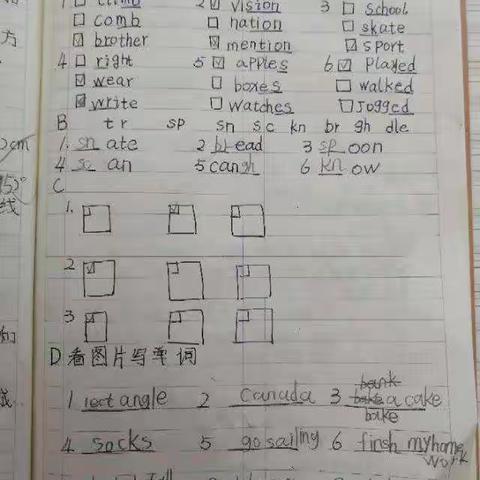 1 climb 2 vision 3 school
comb nation skate
brother mention sport
4 right 5 apples 6 played
wear boxes walked
write watches jogged
B tr sp sn sc kn br gh dle
1. sn ate 2 br ead 3 sp oon
4 sc an 5 can gh 6 kn ow
C
1.
2
3
D 看图片写单词
bank
1 rect angle 2 Canada 3 bake a cake
bake
4 socks 5 go sailing 6 finsh my home
work